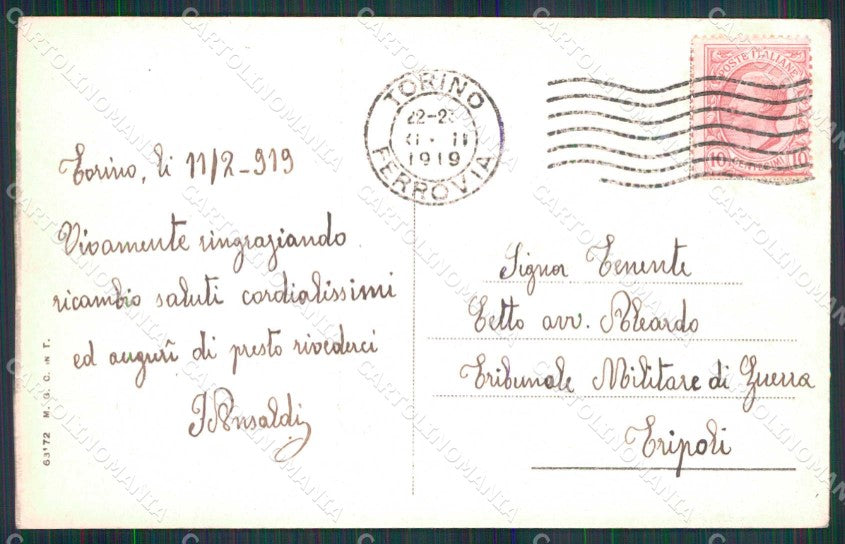 TORINO
22-23
11 · II
1919
FERROVIA
POSTE ITALIANE
10 CENTESIMI 10
Torino, li 11/2-919
Vivamente ringraziando
ricambio saluti cordialissimi
ed augurî di presto rivederci
Signor Tenente
Tetto avv. Aleardo
Tribunale Militare di Guerra
Tripoli
63172 M. G. C. NT.
CARTOLINOMANIA